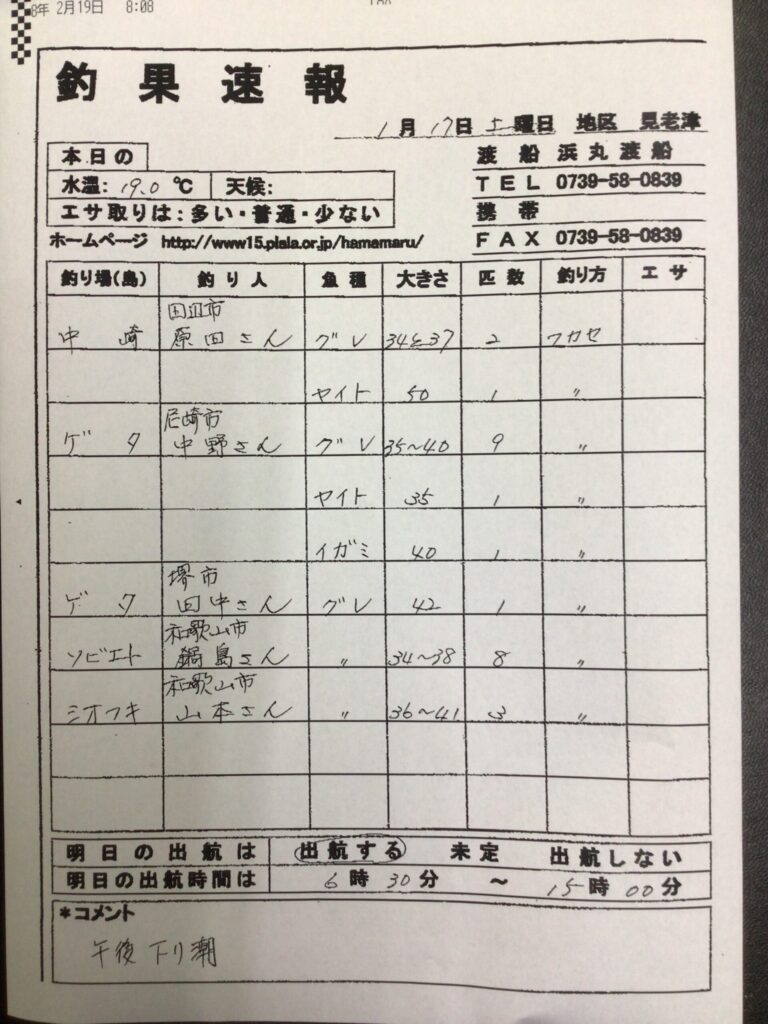 8年 2月19日 8:08
釣果速報
1月17日 土曜日 地区 見老津
本日の
水温: 19.0 ℃ 天候:
エサ取りは:多い・普通・少ない
渡船 浜丸渡船
TEL 0739-58-0839
携帯
FAX 0739-58-0839
ホームページ http://www15.plala.or.jp/hamamaru/
釣り場(島) 釣り人 魚種 大きさ 匹数 釣り方 エサ
田辺市
中崎 原田さん グレ 34と37 2 フカセ
ヤイト 50 1 〃
尼崎市
ゲタ 中野さん グレ 35~40 9 〃
ヤイト 35 1 〃
イガミ 40 1 〃
堺市
ゲタ 田中さん グレ 42 1 〃
和歌山市
ソビエト 鍋島さん 〃 34~38 8 〃
和歌山市
シオフキ 山本さん 〃 36~41 3 〃
明日の出航は 出航する 未定 出航しない
明日の出航時間は 6時30分 ~ 15時00分
*コメント
午後 下り潮